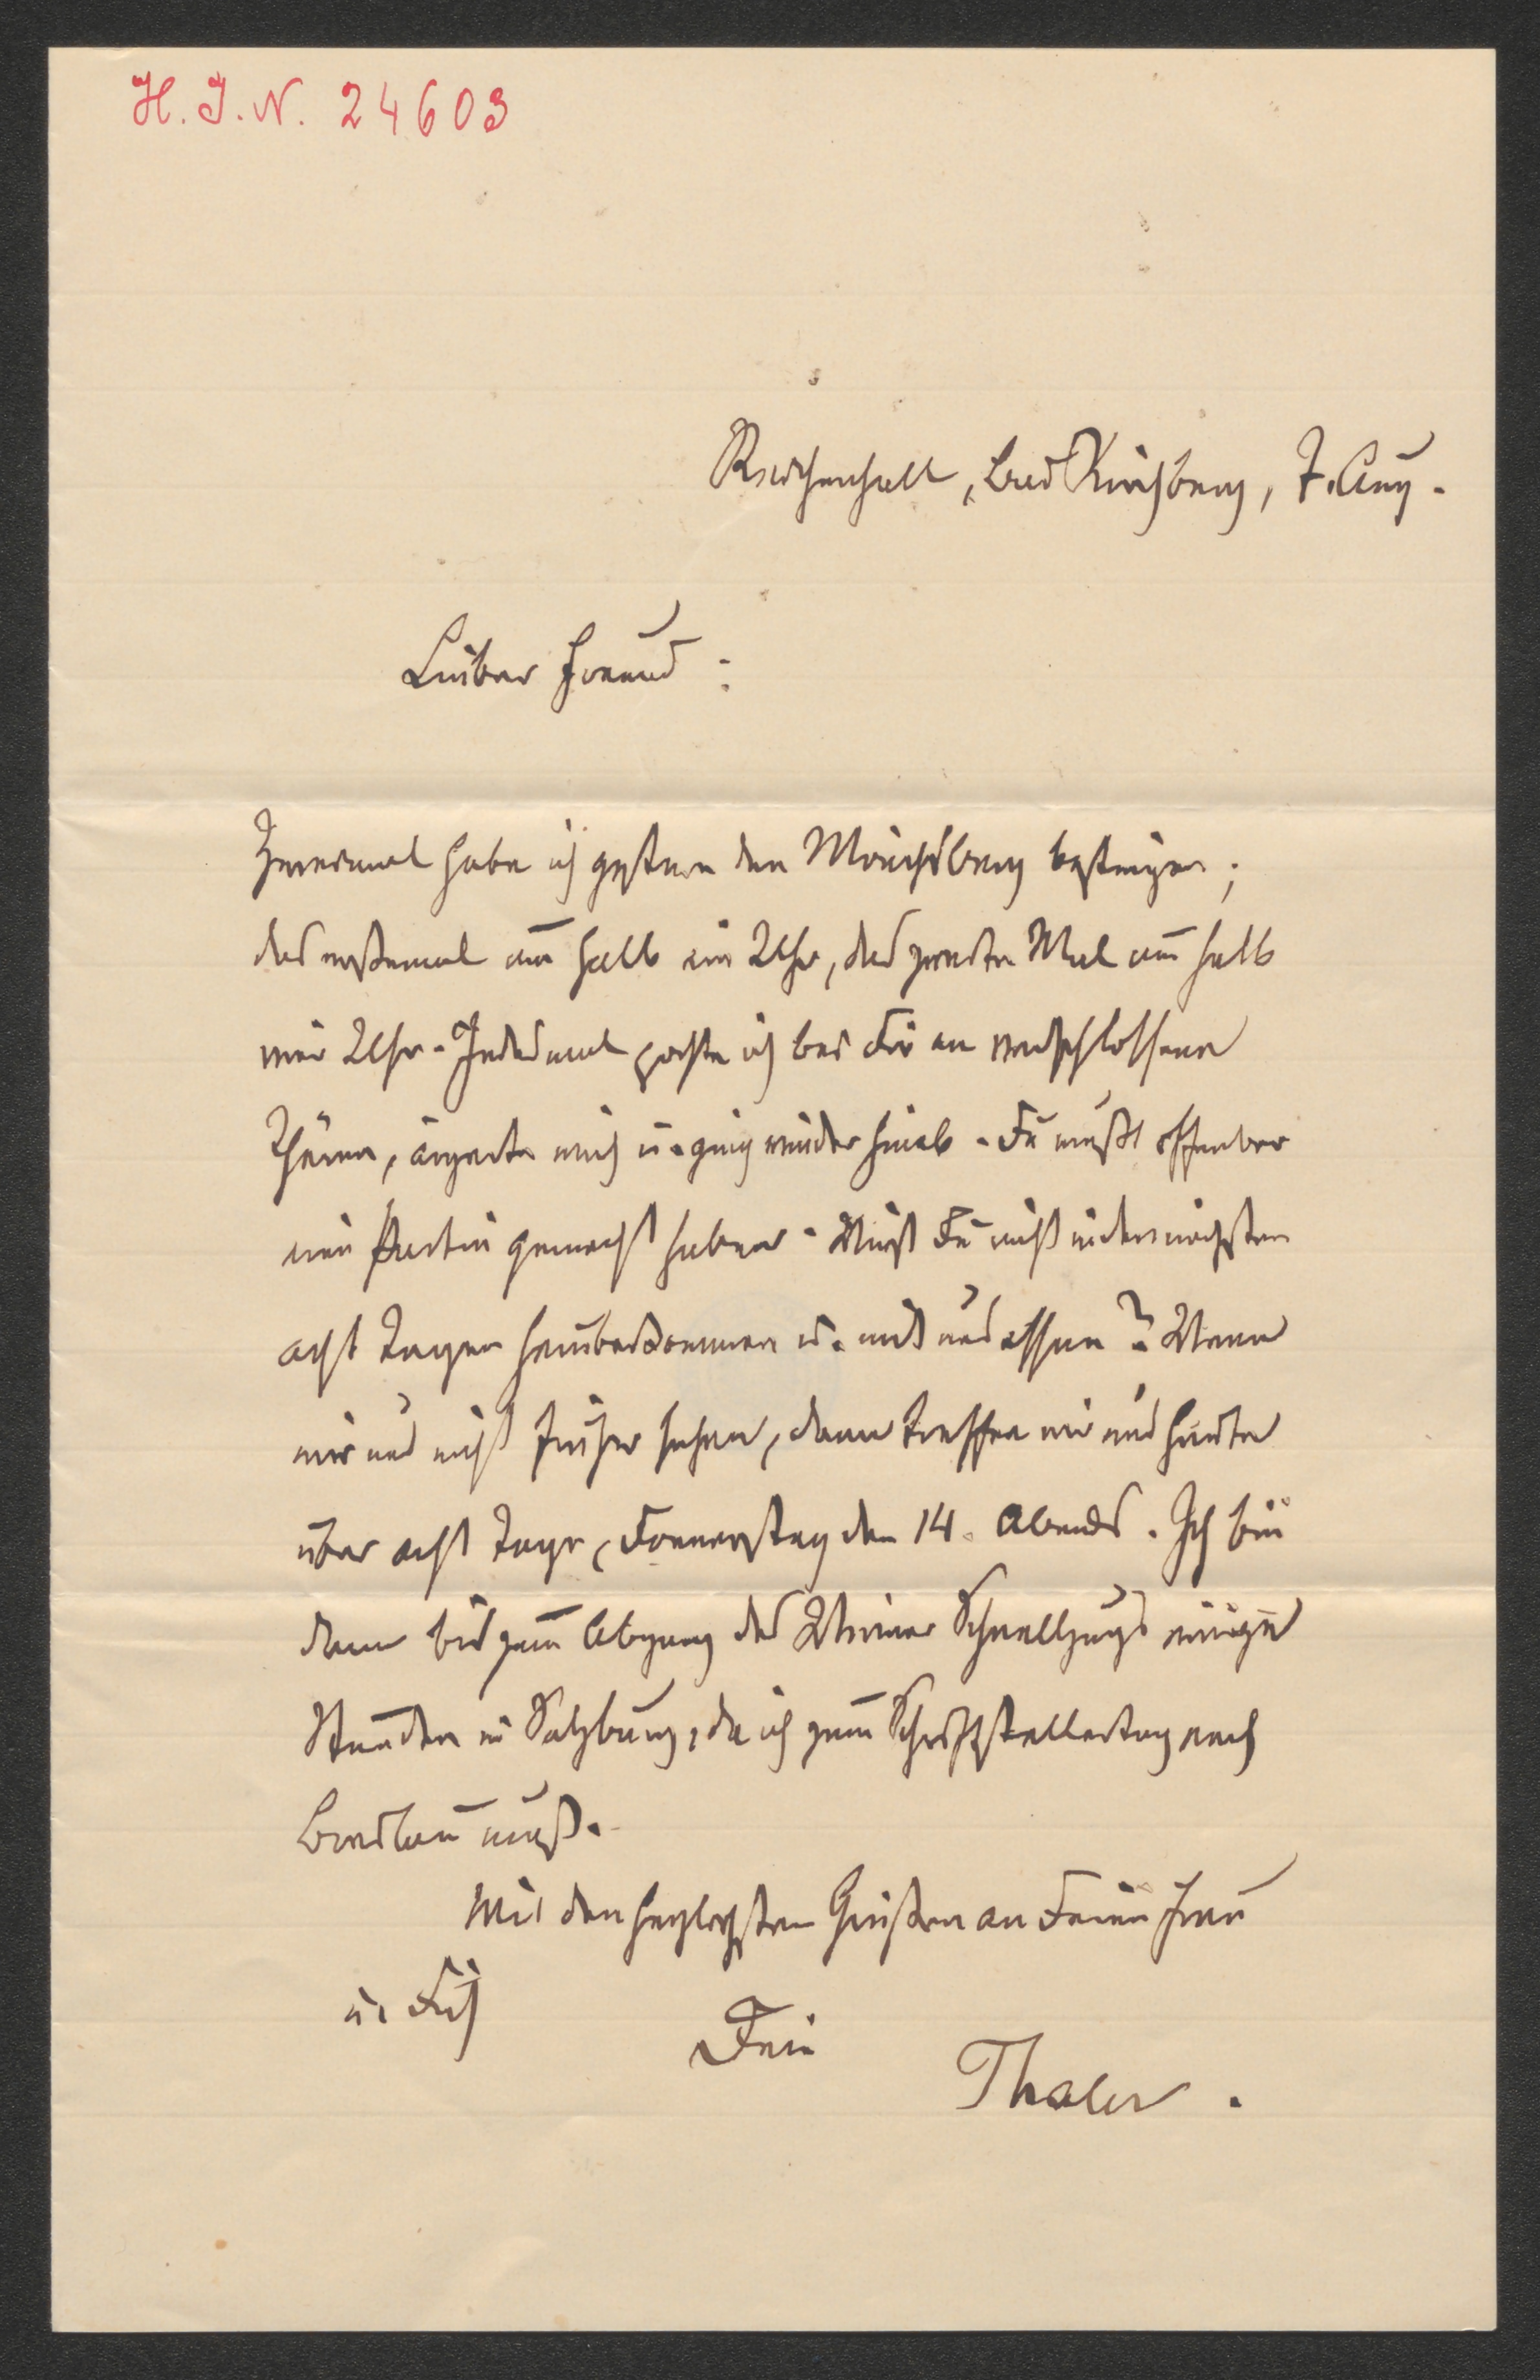 H. I. N. 24603
Reichenhall, Bad Kirchberg, 7. Aug.
Lieber Freund:
Zweimal habe ich gestern den Mönchsberg bestiegen;
das erstemal um halb ein Uhr, das zweite Mal um halb
vier Uhr. Jedesmal pochte ich bei Dir an verschlossene
Thüren, ärgerte mich u. ging wieder hinab. Du mußt offenbar
eine Partie gemacht haben. Willst Du nicht in den nächsten
acht Tagen herüberkommen u. mit uns essen? Wenn
wir uns nicht früher sehen, dann treffen wir uns heute
über acht Tage, Donnerstag den 14. Abends. Ich bin
dann bis zum Abgang des Wiener Schnellzugs einige
Stunden in Salzburg, da ich zum Schriftstellertag nach
Breslau muß.
Mit den herzlichsten Grüßen an Deine Frau
u. Dich
Dein
Thaler.